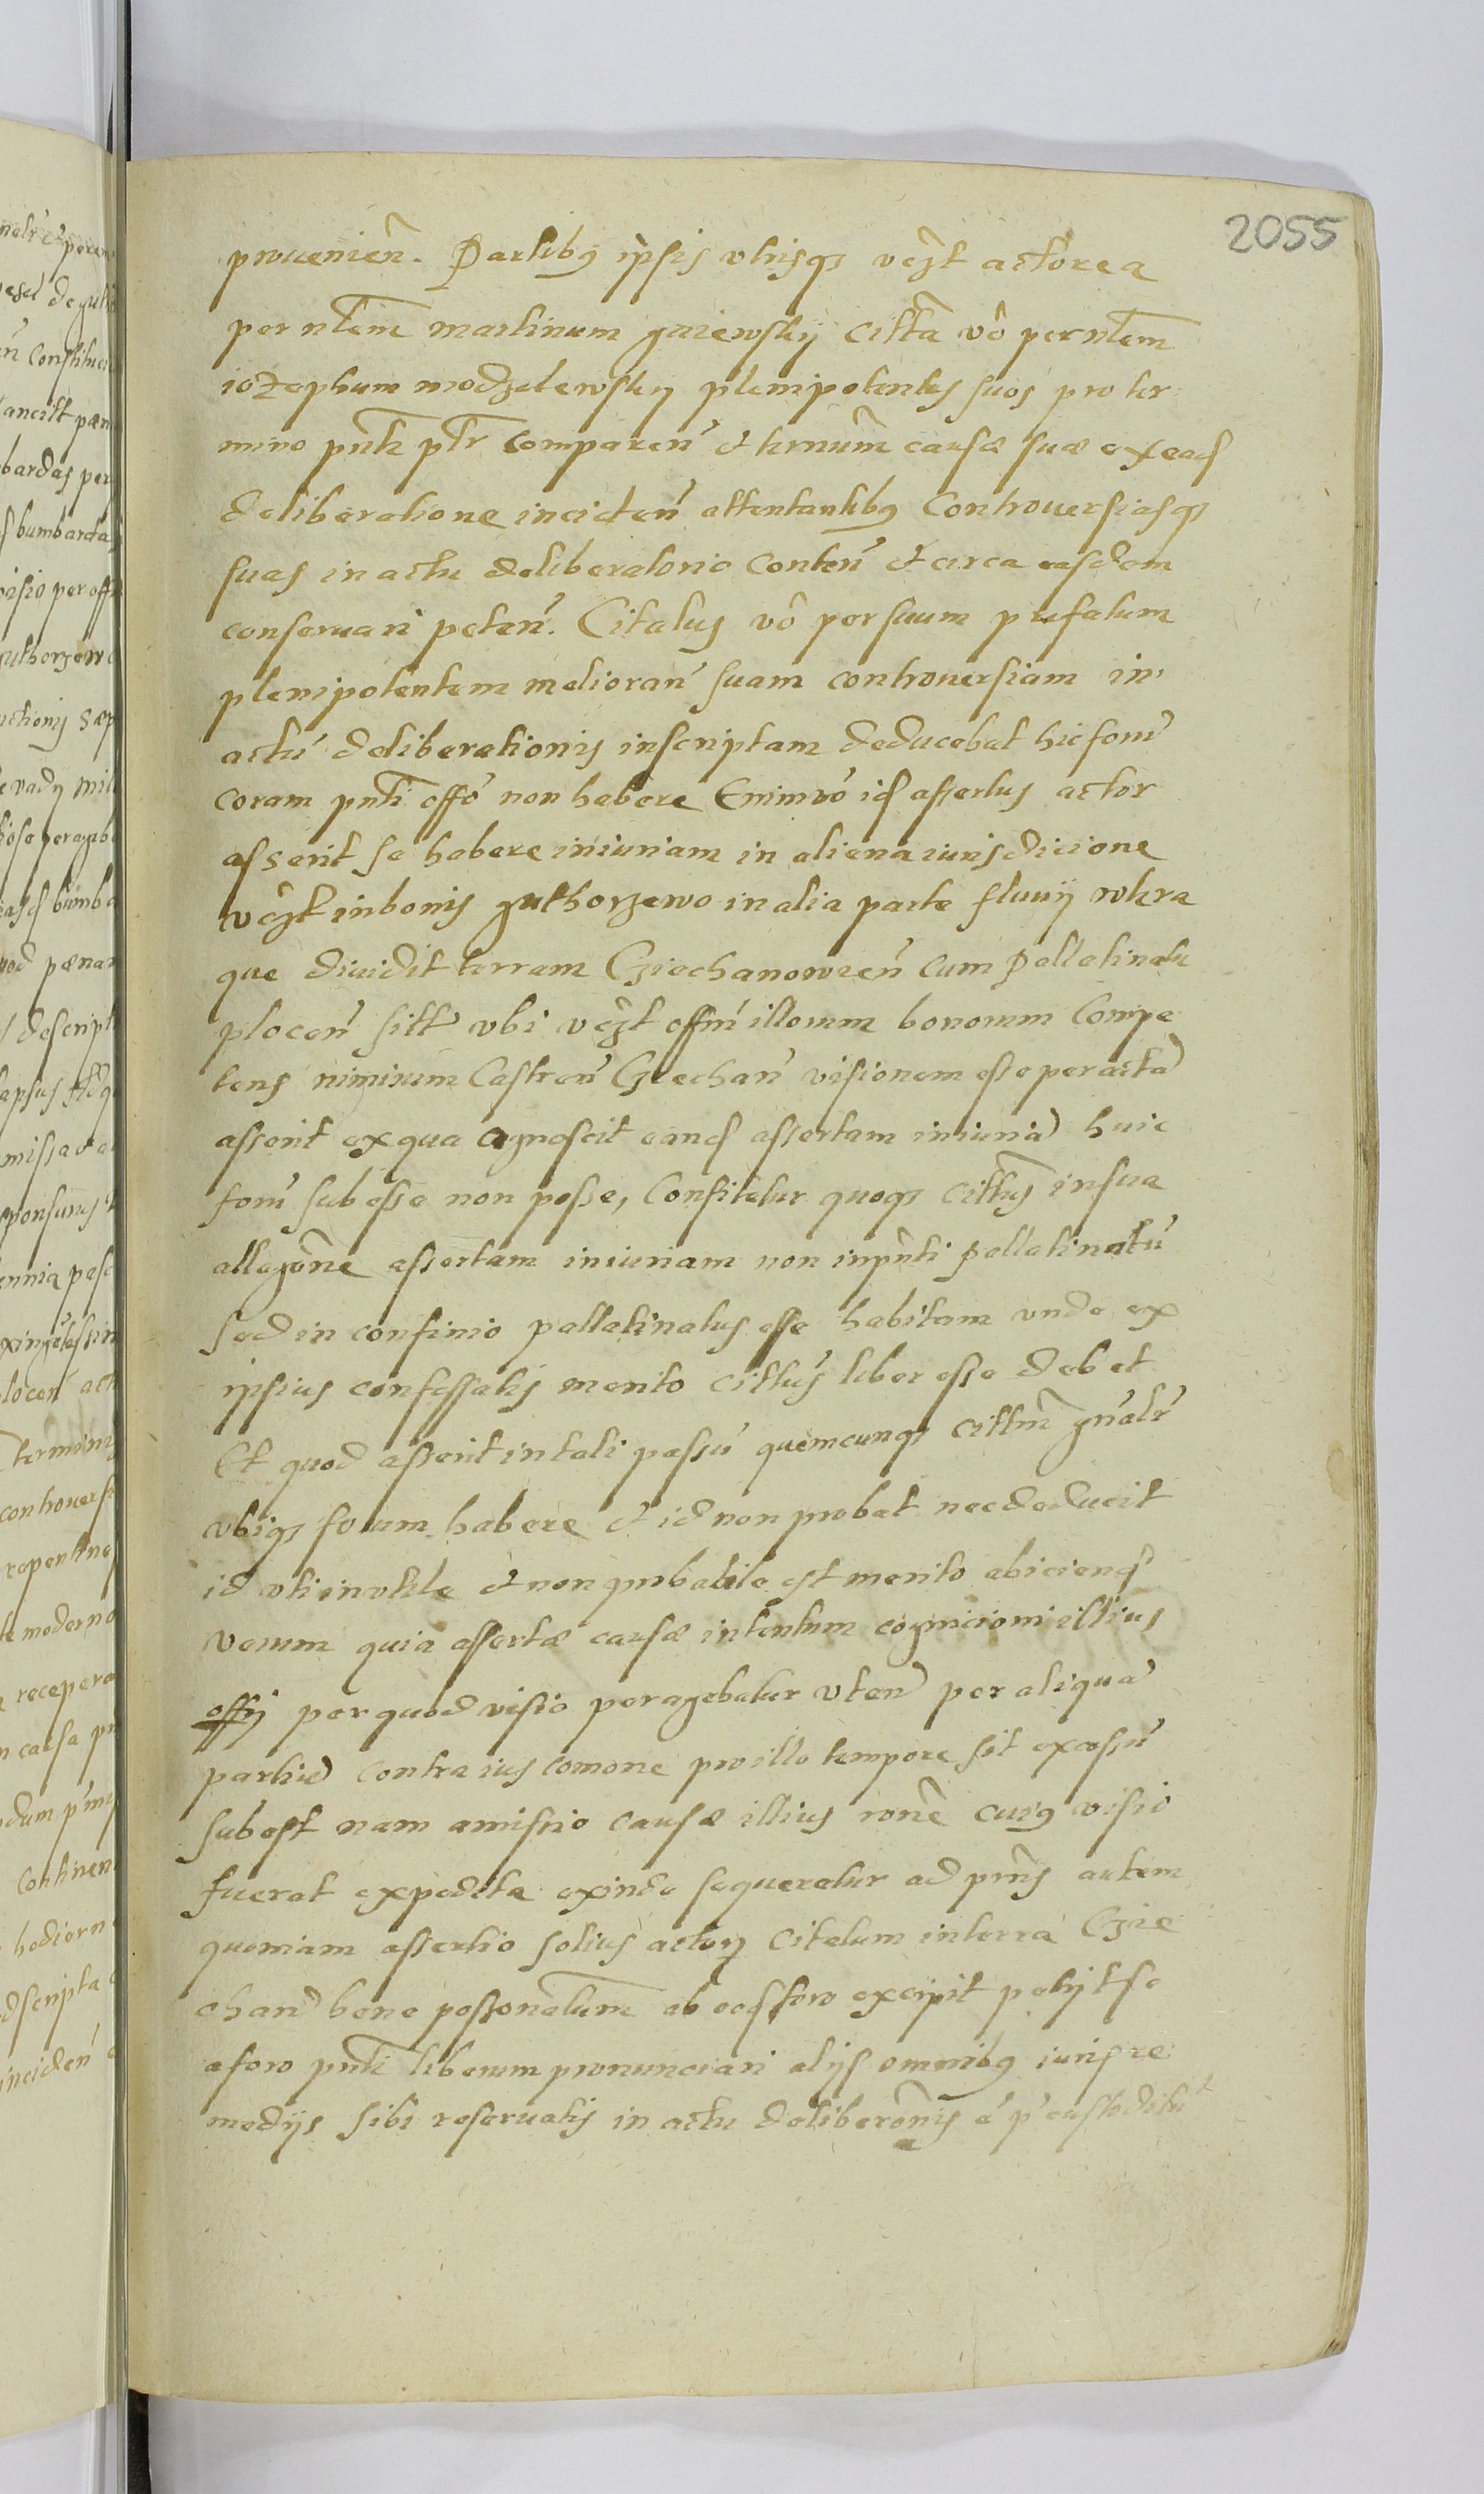 2055
prouenien̄. Partibꝫ ipsis vtrisqꝫ vczt actorea
per nlem martinum gaiewskij Citta vo per nlem
iozephum modzelewsky plenipotentes suos pro ter
mino pnti ptr comparen̄ et termum causæ suæ ex ead
deliberatione inciden̄ attentantibꝫ Controuersiasqꝫ
suas in actu deliberatorio Conten̄ et circa easdem
conseruari peten̄. Citatus vo per suum prefatum
plenipotentem melioran̄ suam controuersiam in
actu deliberationis inscriptam deducebat hic forū
coram pnti offo non habere Enimvo id assertus actor
asserit se habere iniuriam in aliena iurisdicione
vczt in bonis guthorzewo in alia parte fluuij wkra
que diuidit terram Cziechanowien̄ cum pallatinatu
plocen̄ sitt vbi vczt offm illorum bonorum Compe
tens nimirum Castren̄ Cziechan̄ visionem esse peractā
asserit ex qua agnoscit eand assertam iniuriā huic
foro subesse non posse, Confitetur quoqꝫ cittus in sua
allegone assertam iniuriam non in pnti pallatinatu
sed in confinio pallatinatus esse habitam vnde ex
ipsius confessatis merito cittus liber esse debet
Et quod asserit in tali passu quemcunqꝫ cittm gnalr
vbiqꝫ forum habere et id non probat nec deducit
id vti inutile et non probabile est merito abiciend
verum quia assertæ causæ intentum cognicioni illius
offij per quod visio peragebatur vten̄ per aliquā
partiū contra ius comone pro illo tempore sit excessū
subest nam amissio causæ illius rone cuiꝫ visio
fuerat expedita exinde sequeretur ad pms autem
quoniam assertio solius actorꝫ Citatum in terra Czie
chan̄ bene possonatum ab eod foro excipit petijt se
a foro pnti liberum pronunciari alijs omnibꝫ iuris re
medijs sibi reseruatis in actu deliberonis é p custoditū